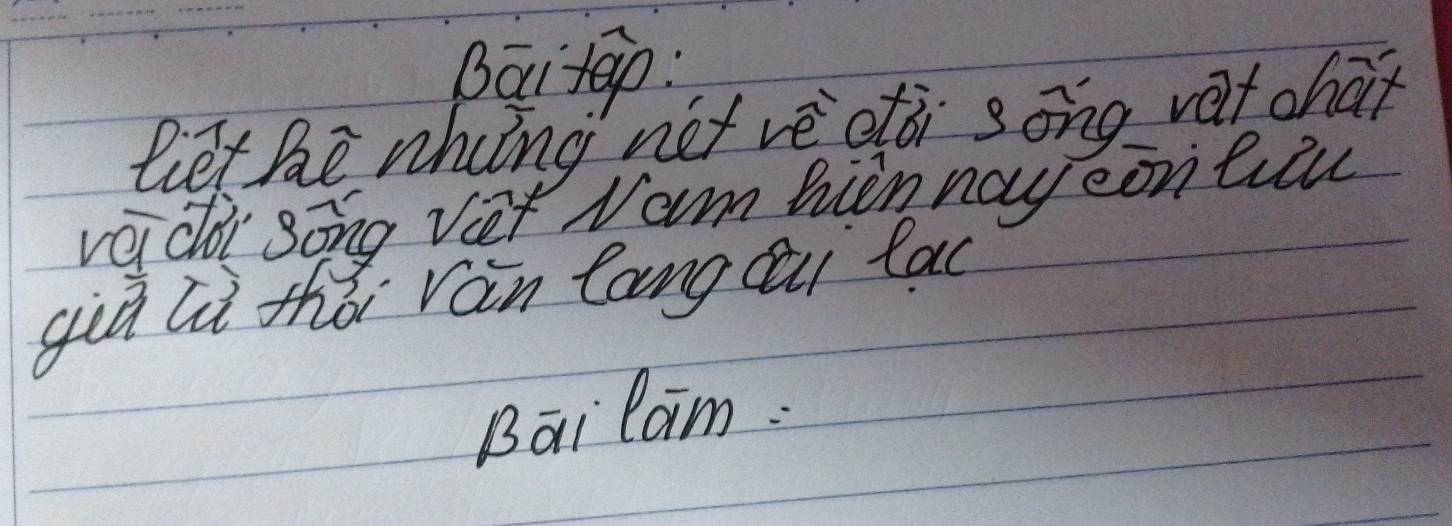 Bài tập:
liệt kê những nét về đời sống vật chất
và đời sống Việt Nam hiện nay còn lưu
giữ từ thời Văn lang âu lạc
Bài làm: